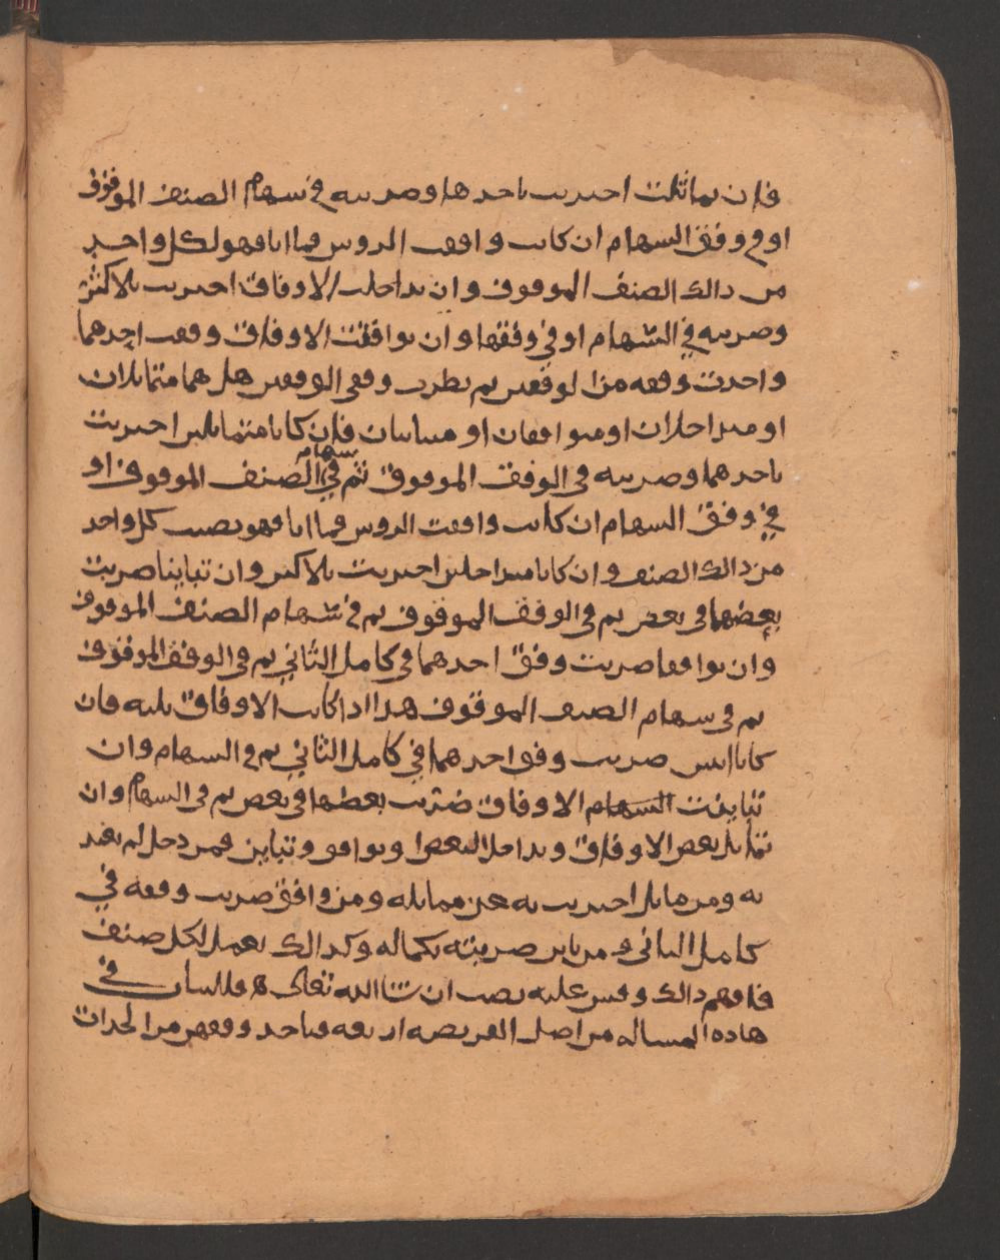 فان تماثلت اجتريت باحدها وضربته في سهام الصنف الموقوف
او في وفق السهام ان كانت وافقت الروس فما اتا فهو لكل واحد
من دالك الصنف الموقوف وان تداخلت الاوفاق اجتريت بالاكثر
وضربته في السهام او في وفقها وان توافقت الاوفاق وقفت احدهما
واخدت وفقه من الوفقين ثم تطرت وفقي الوفقين هل هما متماثلان
او متداخلان او متوافقان او متباينان فان كانا متماثلين اجتريت
باحدهما وضربته في الوفق الموقوف ثم في سهام الصنف الموقوف او
في وفق السهام ان كانت وافقت الروس فما اتا فهو نصيب كل واحد
من دالك الصنف وان كانا متداخلين اجتريت بالاكثر وان تباينا ضربت
بعضهما في بعض ثم في الوفق الموقوف ثم في سهام الصنف الموقوف
وان توافقا ضربت وفق احدهما في كامل الثاني ثم في الوفق الموقوف
ثم في سهام الصنف الموقوف هدا ادا كانت الاوفاق ثلثه فان
كانا اثنين ضربت وفق احدهما في كامل الثاني ثم في السهام وان
تباينت السهام الاوفاق ضربت بعضها في بعض ثم في السهام وان
تماثل بعض الاوفاق وتداخل البعض وتوافق وتباين فمن دخل لم تعتد
به ومن ماثل اجتريت به عن مماثله ومن وافق ضربت وفقه في
كامل الثاني ومن باين ضربته بكماله وكدالك تعمل لكل صنف
فافهم دالك وقس عليه تصب ان شا الله تعالى ه فللبنات في
هاده المساله من اصل الفريضه اربعه فتاخد وفقهن من الجدات